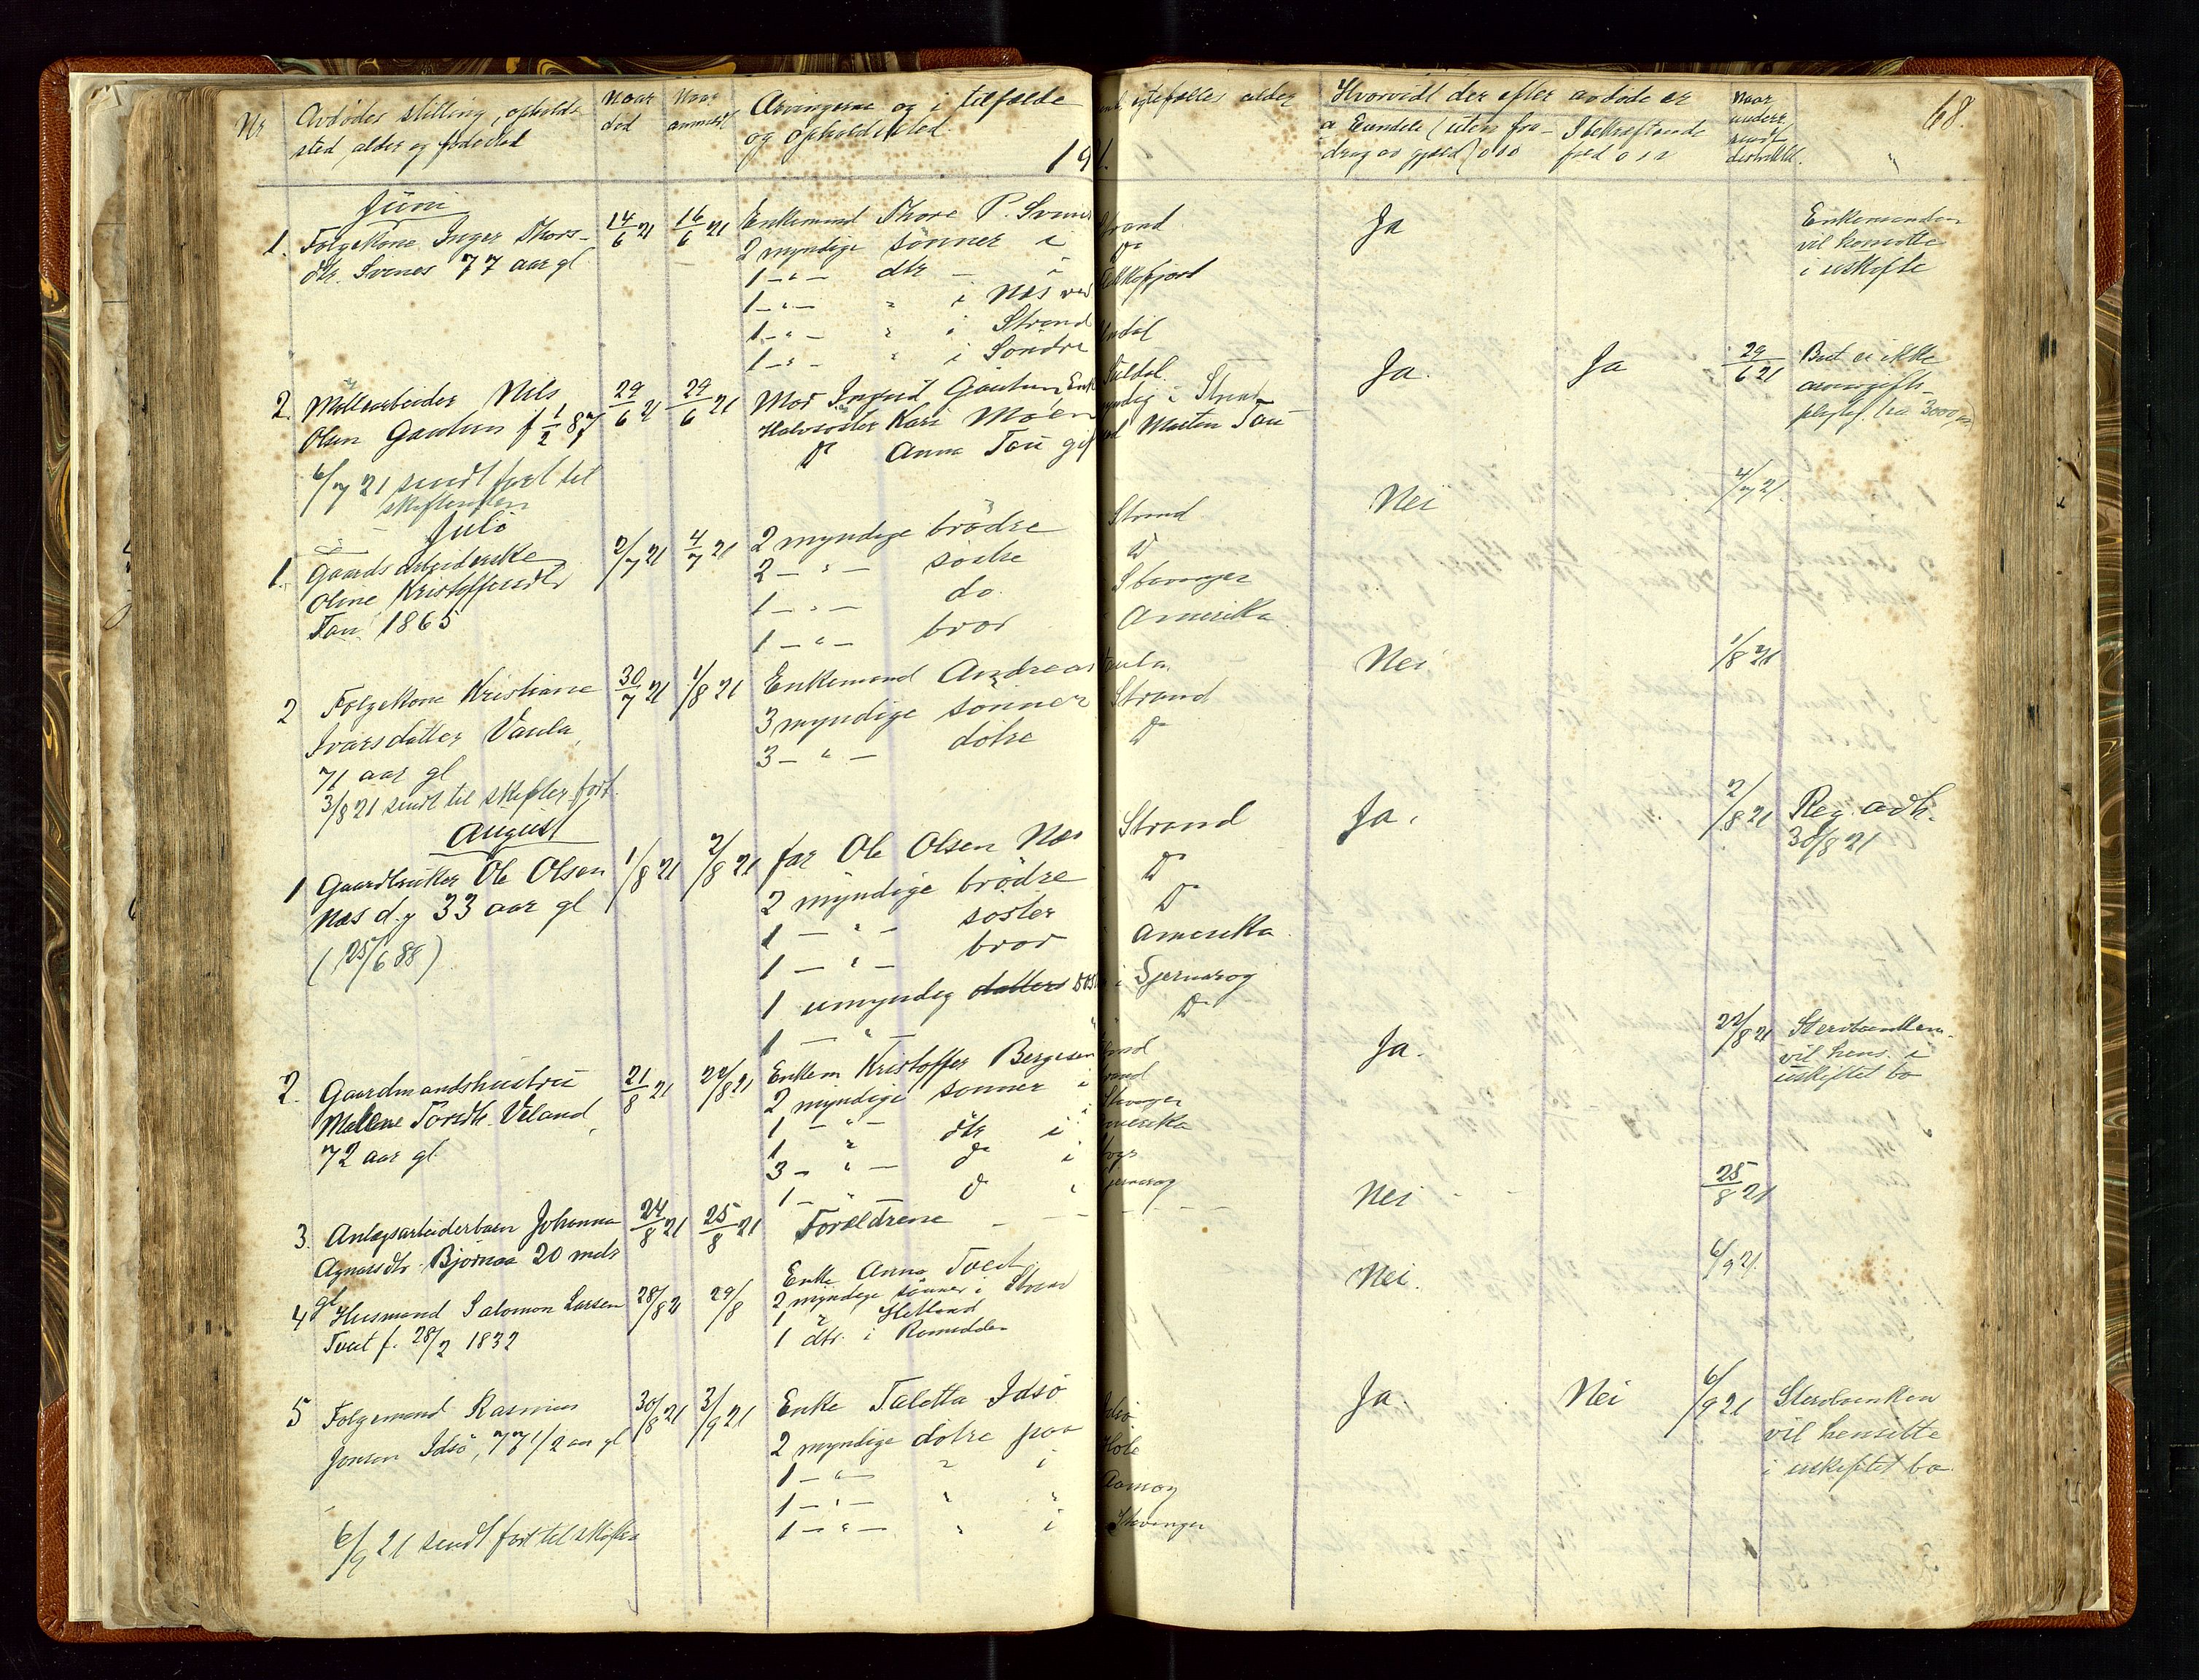 68.
Nr Avdødes stilling, opholds- Naar Naar Arvingerne og i tilfælde egtefælles alder Hvorvidt der efter avdøde er Naar
sted, alder og fødested død anmeldt og opholdssted a Eiendele (uten fra- I bekræftende underr.
drag av gjæld) o s v fald o s v sendt
191.
Juni
1. Følgekone Inger Thors- 14/6 21 16/6 21 Enkemand Thore P. Svines Strand Ja Enkemanden
dtr. Svines 77 aar gl 2 myndige sønner i Do vil hensitte
1 – " – dtr – i Flekkefjord i uskifte
1 – " – " i Næs ved
1 – " – " i Strand
1 – " – " i Søndre
2. Møllearbeider Nils 29/6 21 29/6 21 Mor Ingrid Gautun Enke Suldal Ja. Ja 29/6 21 Boet er ikke
Olsen Gautun f 1/2 87 Halvsøster Kari Moen myndig i Strand arveavgifts-
Do Anna Tau gift med Morten Tau pligtig ca. 3000
6/7 21 sendt fort til
skifteretten
Juli
1. Gaardsarbeiderske 2/7 21 4/7 21 2 myndige brødre Strand Nei 4/7 21
Oline Kristoffersdtr 2 – " – søstre Do
Tau 1865 1 – " – do. Stavanger
1 – " – bror Amerika
2 Følgekone Kristiane 30/7 21 1/8 21 Enkemand Andreas Vaula Nei 1/8 21
Ivarsdatter Vaula, 3 myndige sønner Strand
71 aar gl 3 – " – døtre Do
3/8 21 sendt til skifter. fort.
August
1 Gaardbruker Ole Olsen 1/8 21 2/8 21 far Ole Olsen Næs Strand Ja. 2/8 21 Reg. avh.
Næs d.y 33 aar gl 2 myndige brødre Do 30/8 21
(25/6 88) 1 – " – søster Do
1 – " – bror Amerika
1 umyndig i Sjernarøy
1 – " – Do
2. Gaardmandshustru 21/8 21 22/8 21 Enkem Kristoffer Bergesen Strand Ja. 22/8 21 Stervboenkem.
Mallene Tordtr. Veland, 2 myndige sønner i Strand vil hens. i
72 aar gl 1 – " – dtr i Stavanger uskiftet bo
1 " do i Amerika
3 – " –
1 – " – Do i Sjernarøy
3. Anlægsarbeiderbarn Johanna 24/8 21 25/8 21 Forældrene Nei 25/8 21
Agnarsdtr. Bjørnaa 20 mdr
gl
4 Husmand Salomon Larsen 28/8 21 29/8 Enke Anna Tveit Nei. 6/9 21
Tveit f. 28/2 1832 2 myndige sønner i Strand
1 " Hetland
1 dtr. i
5 Følgemand Rasmus 30/8 21 3/9 21 Enke Taletta Idsø Idsø Ja. Nei 6/9 21 Stervboenken
Jonsen Idsø, 77 1/2 aar gl 2 myndige døtre paa Hole vil hensitte
1 – " – " i Aamøy i uskiftet bo
1 – " – " "
1 – " – " i Stavanger
6/9 21 sendt fort til skifter